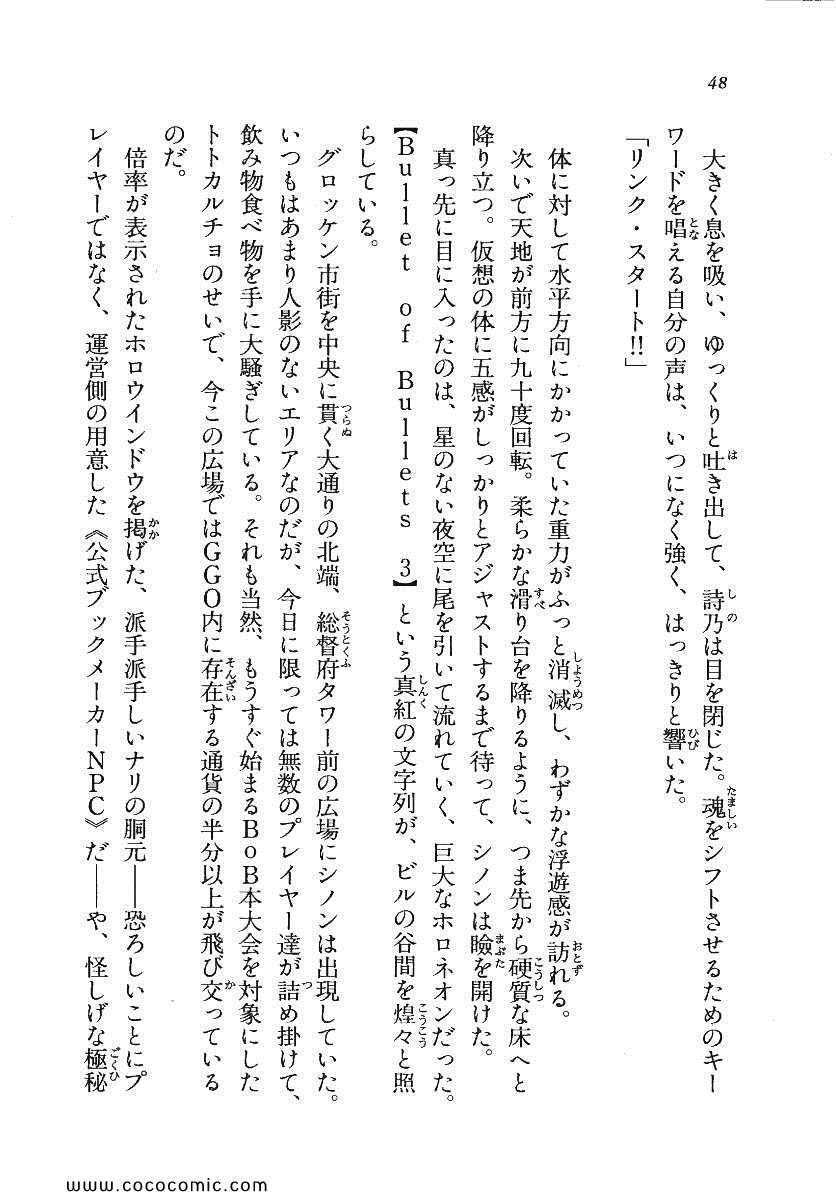 48
大きく息を吸い、ゆっくりと吐き出して、詩乃は目を閉じた。魂をシフトさせるためのキー
ワードを唱える自分の声は、いつになく強く、はっきりと響いた。
「リンク・スタート!!」
体に対して水平方向にかかっていた重力がふっと消滅し、わずかな浮遊感が訪れる。
次いで天地が前方に九十度回転。柔らかな滑り台を降りるように、つま先から硬質な床へと
降り立つ。仮想の体に五感がしっかりとアジャストするまで待って、シノンは瞼を開けた。
真っ先に目に入ったのは、星のない夜空に尾を引いて流れていく、巨大なホロネオンだった。
【Bullet of Bullets 3】という真紅の文字列が、ビルの谷間を煌々と照
らしている。
グロッケン市街を中央に貫く大通りの北端、総督府タワー前の広場にシノンは出現していた。
いつもはあまり人影のないエリアなのだが、今日に限っては無数のプレイヤー達が詰め掛けて、
飲み物食べ物を手に大騒ぎしている。それも当然、もうすぐ始まるBoB本大会を対象にした
トトカルチョのせいで、今この広場ではGGO内に存在する通貨の半分以上が飛び交っている
のだ。
倍率が表示されたホロウインドウを掲げた、派手派手しいナリの胴元――恐ろしいことにプ
レイヤーではなく、運営側の用意した《公式ブックメーカーNPC》だ――や、怪しげな極秘
www.cococomic.com